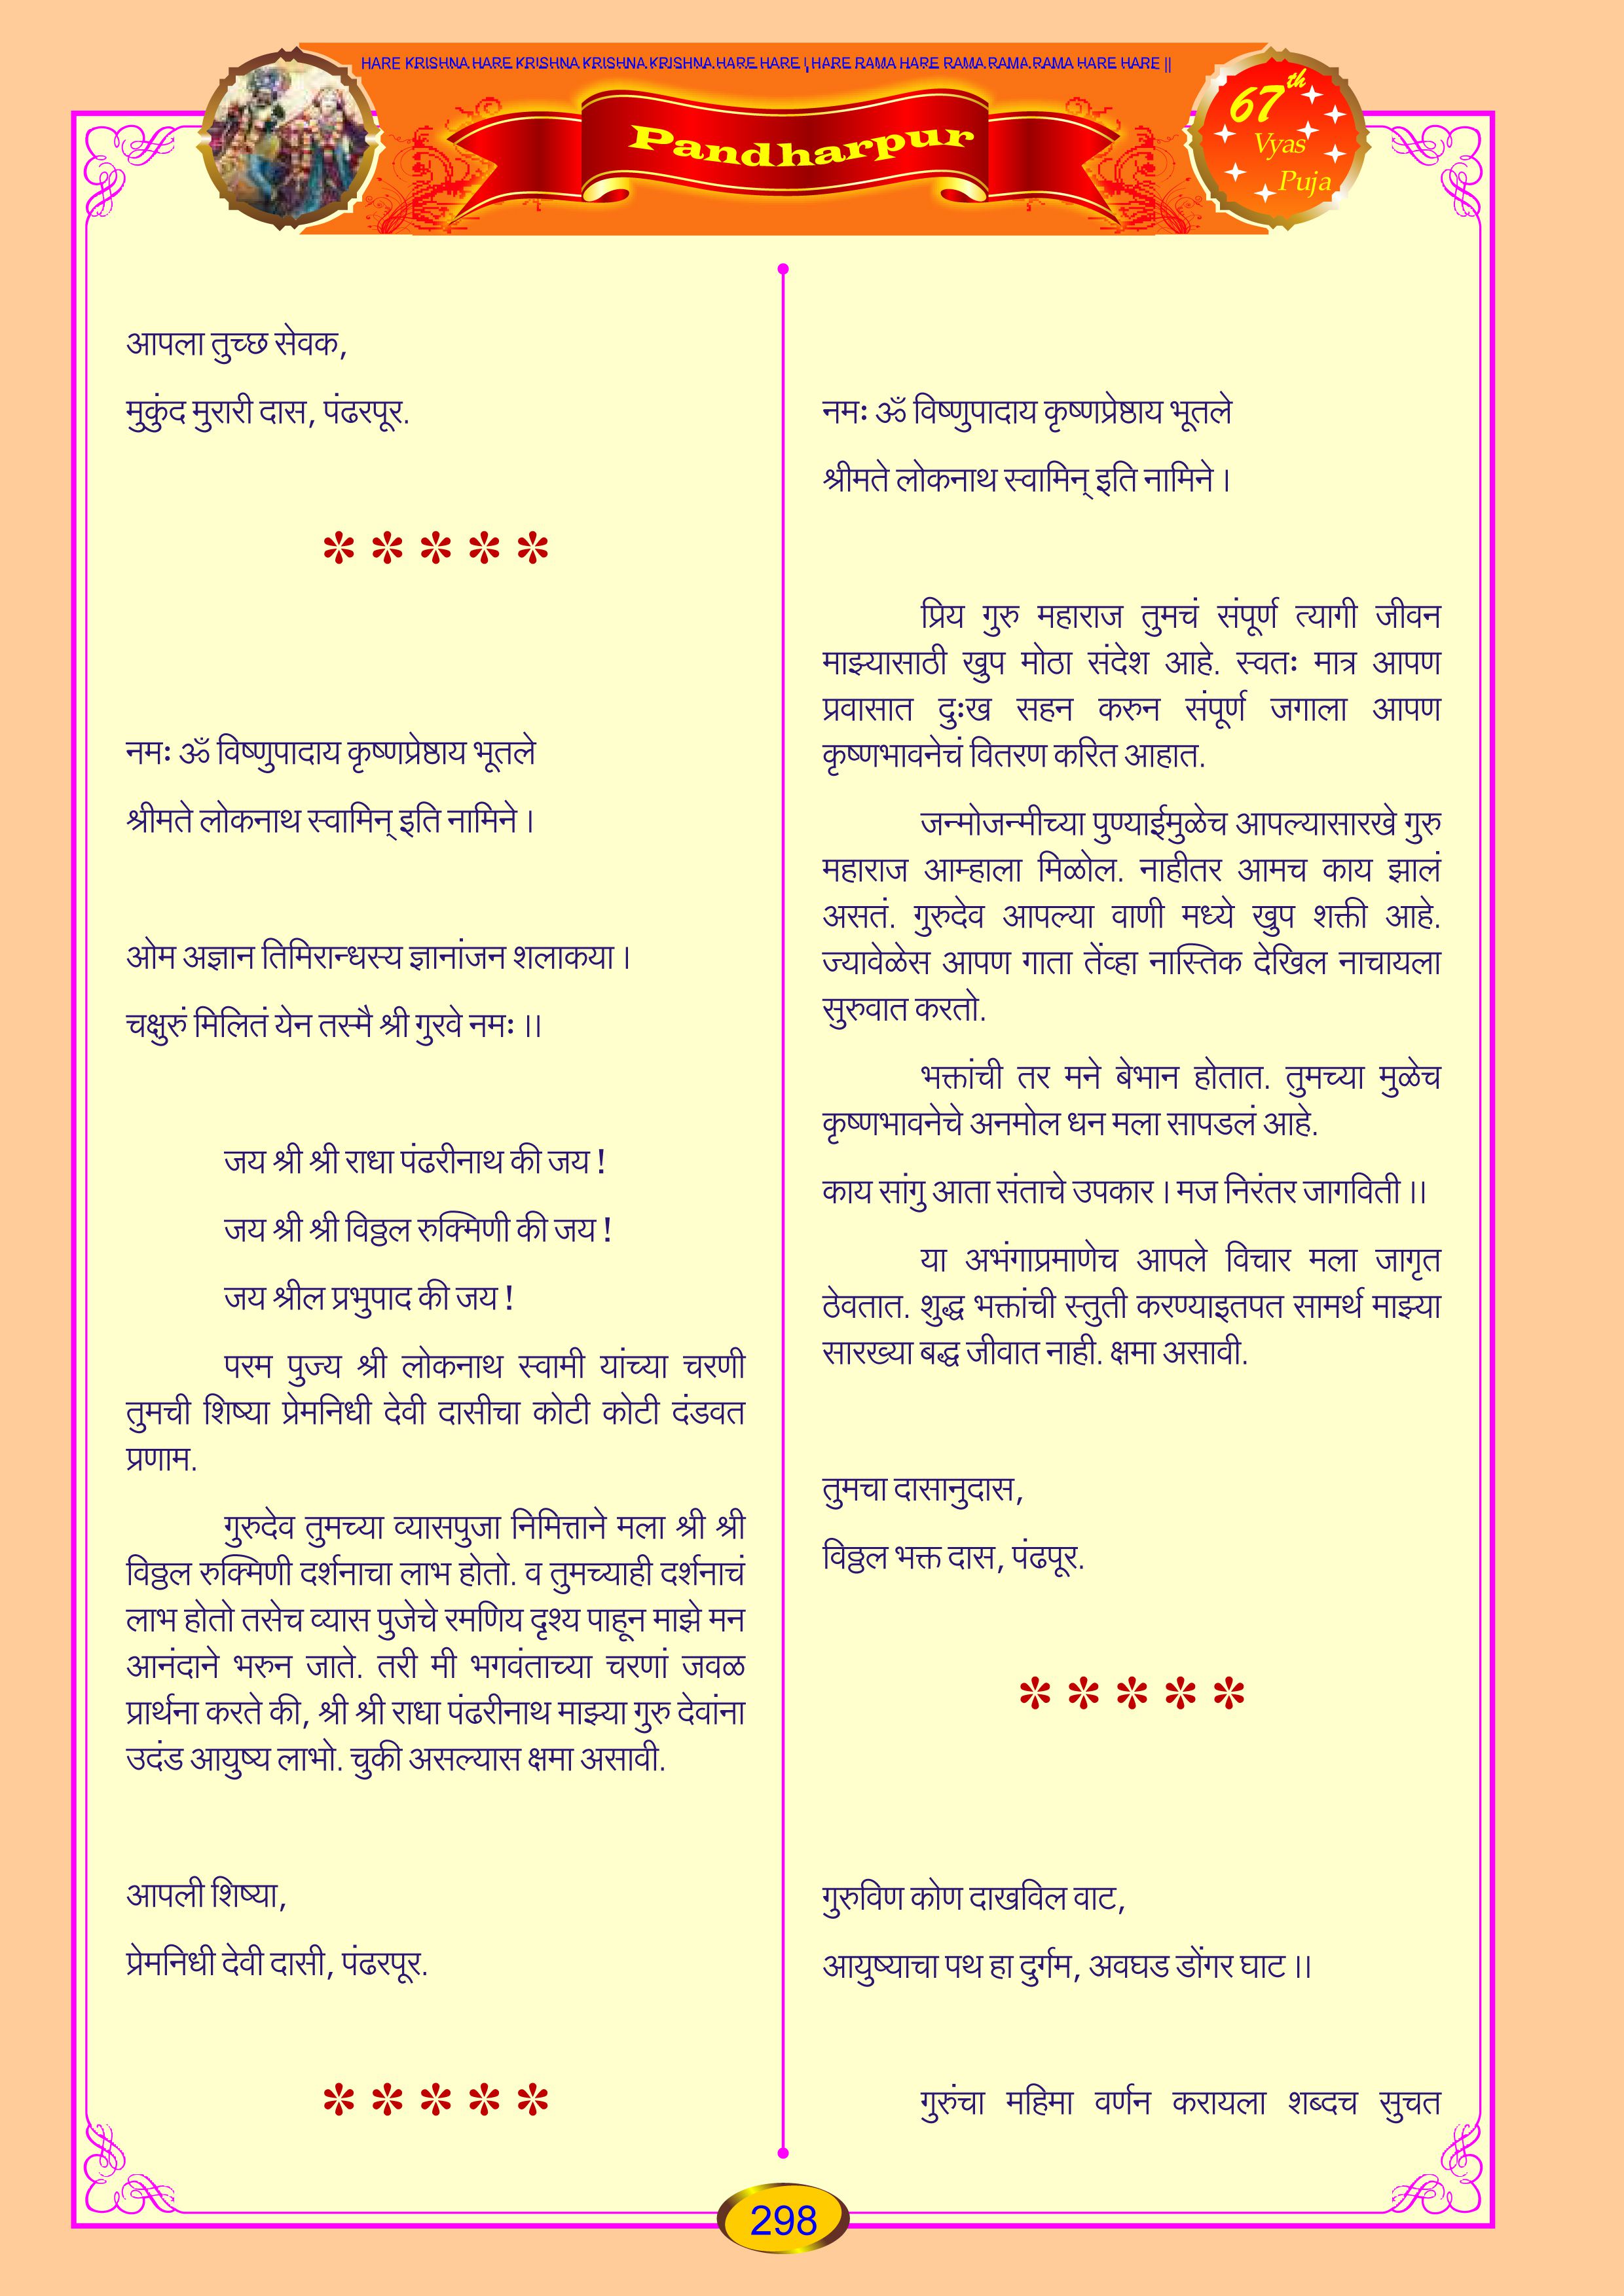 HARE KRISHNA HARE KRISHNA KRISHNA KRISHNA HARE HARE | HARE RAMA HARE RAMA RAMA RAMA HARE HARE ||
Pandharpur
67th
Vyas
Puja
आपला तुच्छ सेवक,
मुकुंद मुरारी दास, पंढरपूर.
*****
नमः ॐ विष्णुपादाय कृष्णप्रेष्ठाय भूतले
श्रीमते लोकनाथ स्वामिन् इति नामिने ।
ओम अज्ञान तिमिरान्धस्य ज्ञानांजन शलाकया ।
चक्षुरुं मिलितं येन तस्मै श्री गुरवे नमः ।।
जय श्री श्री राधा पंढरीनाथ की जय !
जय श्री श्री विठ्ठल रुक्मिणी की जय !
जय श्रील प्रभुपाद की जय !
परम पुज्य श्री लोकनाथ स्वामी यांच्या चरणी
तुमची शिष्या प्रेमनिधी देवी दासीचा कोटी कोटी दंडवत
प्रणाम.
गुरुदेव तुमच्या व्यासपुजा निमित्ताने मला श्री श्री
विठ्ठल रुक्मिणी दर्शनाचा लाभ होतो. व तुमच्याही दर्शनाचं
लाभ होतो तसेच व्यास पुजेचे रमणिय दृश्य पाहून माझे मन
आनंदाने भरुन जाते. तरी मी भगवंताच्या चरणां जवळ
प्रार्थना करते की, श्री श्री राधा पंढरीनाथ माझ्या गुरु देवांना
उदंड आयुष्य लाभो. चुकी असल्यास क्षमा असावी.
आपली शिष्या,
प्रेमनिधी देवी दासी, पंढरपूर.
*****
नमः ॐ विष्णुपादाय कृष्णप्रेष्ठाय भूतले
श्रीमते लोकनाथ स्वामिन् इति नामिने ।
प्रिय गुरु महाराज तुमचं संपूर्ण त्यागी जीवन
माझ्यासाठी खुप मोठा संदेश आहे. स्वतः मात्र आपण
प्रवासात दुःख सहन करुन संपूर्ण जगाला आपण
कृष्णभावनेचं वितरण करित आहात.
जन्मोजन्मीच्या पुण्याईमुळेच आपल्यासारखे गुरु
महाराज आम्हाला मिळोल. नाहीतर आमच काय झालं
असतं. गुरुदेव आपल्या वाणी मध्ये खुप शक्ती आहे.
ज्यावेळेस आपण गाता तेंव्हा नास्तिक देखिल नाचायला
सुरुवात करतो.
भक्तांची तर मने बेभान होतात. तुमच्या मुळेच
कृष्णभावनेचे अनमोल धन मला सापडलं आहे.
काय सांगु आता संताचे उपकार । मज निरंतर जागविती ।।
या अभंगाप्रमाणेच आपले विचार मला जागृत
ठेवतात. शुद्ध भक्तांची स्तुती करण्याइतपत सामर्थ माझ्या
सारख्या बद्ध जीवात नाही. क्षमा असावी.
तुमचा दासानुदास,
विठ्ठल भक्त दास, पंढपूर.
*****
गुरुविण कोण दाखविल वाट,
आयुष्याचा पथ हा दुर्गम, अवघड डोंगर घाट ।।
गुरुंचा महिमा वर्णन करायला शब्दच सुचत
298